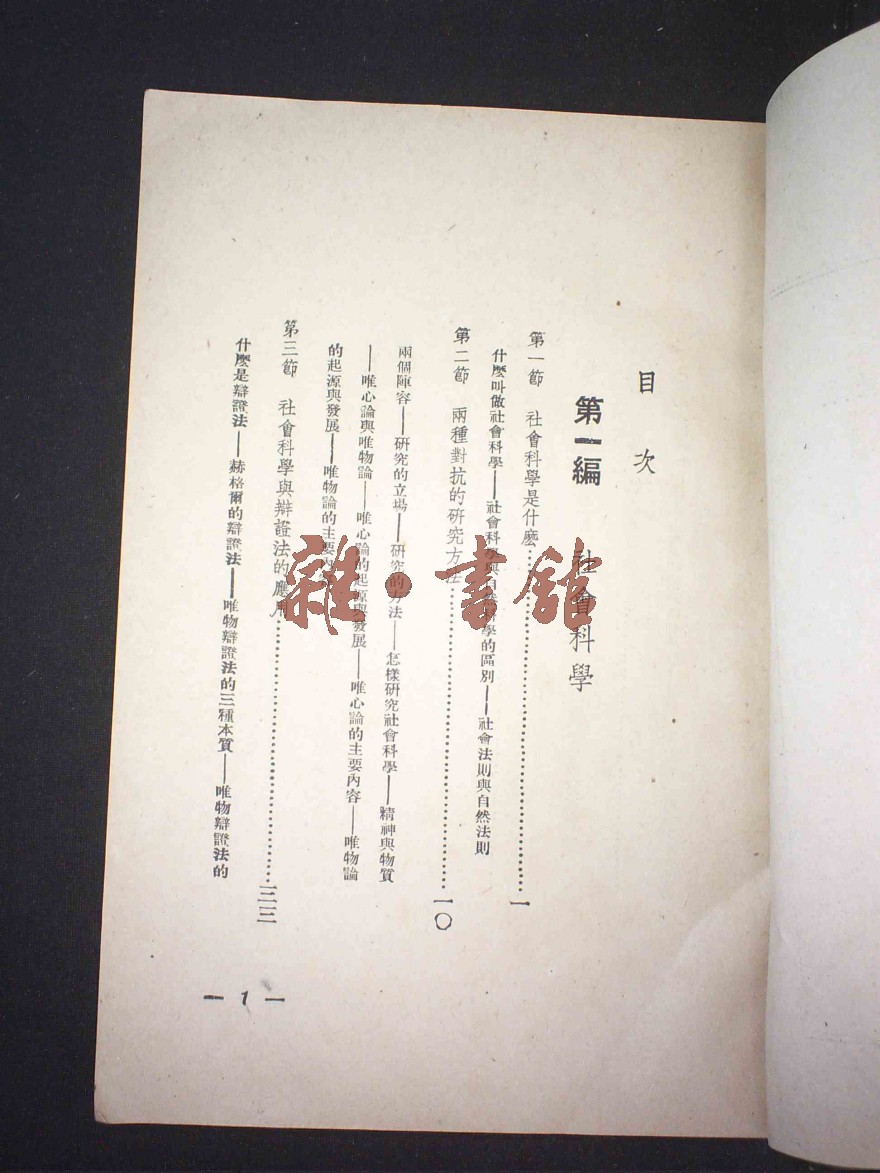 目次
第一編 社會科學
第一節 社會科學是什麽…………一
什麽叫做社會科學——社會科學與自然科學的區別——社會法則與自然法則
第二節 兩種對抗的研究方法…………一〇
兩個陣容——研究的立場——研究的方法——怎樣研究社會科學——精神與物質
——唯心論與唯物論——唯心論的起源與發展——唯心論的主要內容——唯物論
的起源與發展——唯物論的主要內容
第三節 社會科學與辯證法的應用…………三三
什麽是辯證法——赫格爾的辯證法——唯物辯證法的三種本質——唯物辯證法的
— 1 —
雜·書館